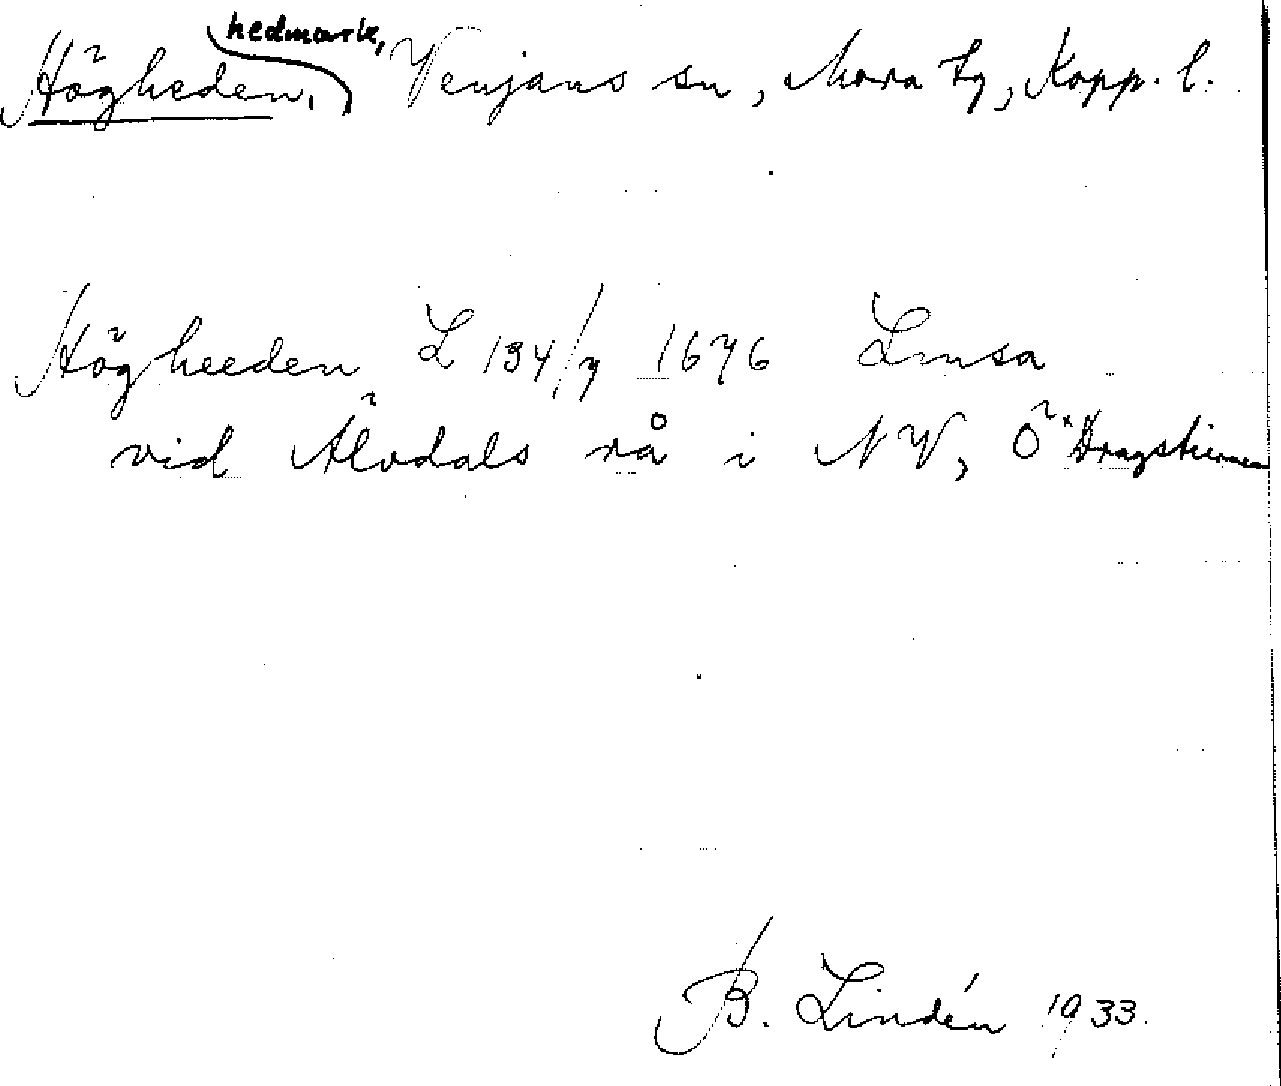 hedmark,
Högheden, Venjans sn, Mora tg, Kopp. l.
Högheeden L 134/7 1676 Lmsa
vid Älvdals rå i NV, Ö
B. Lindén 1933.